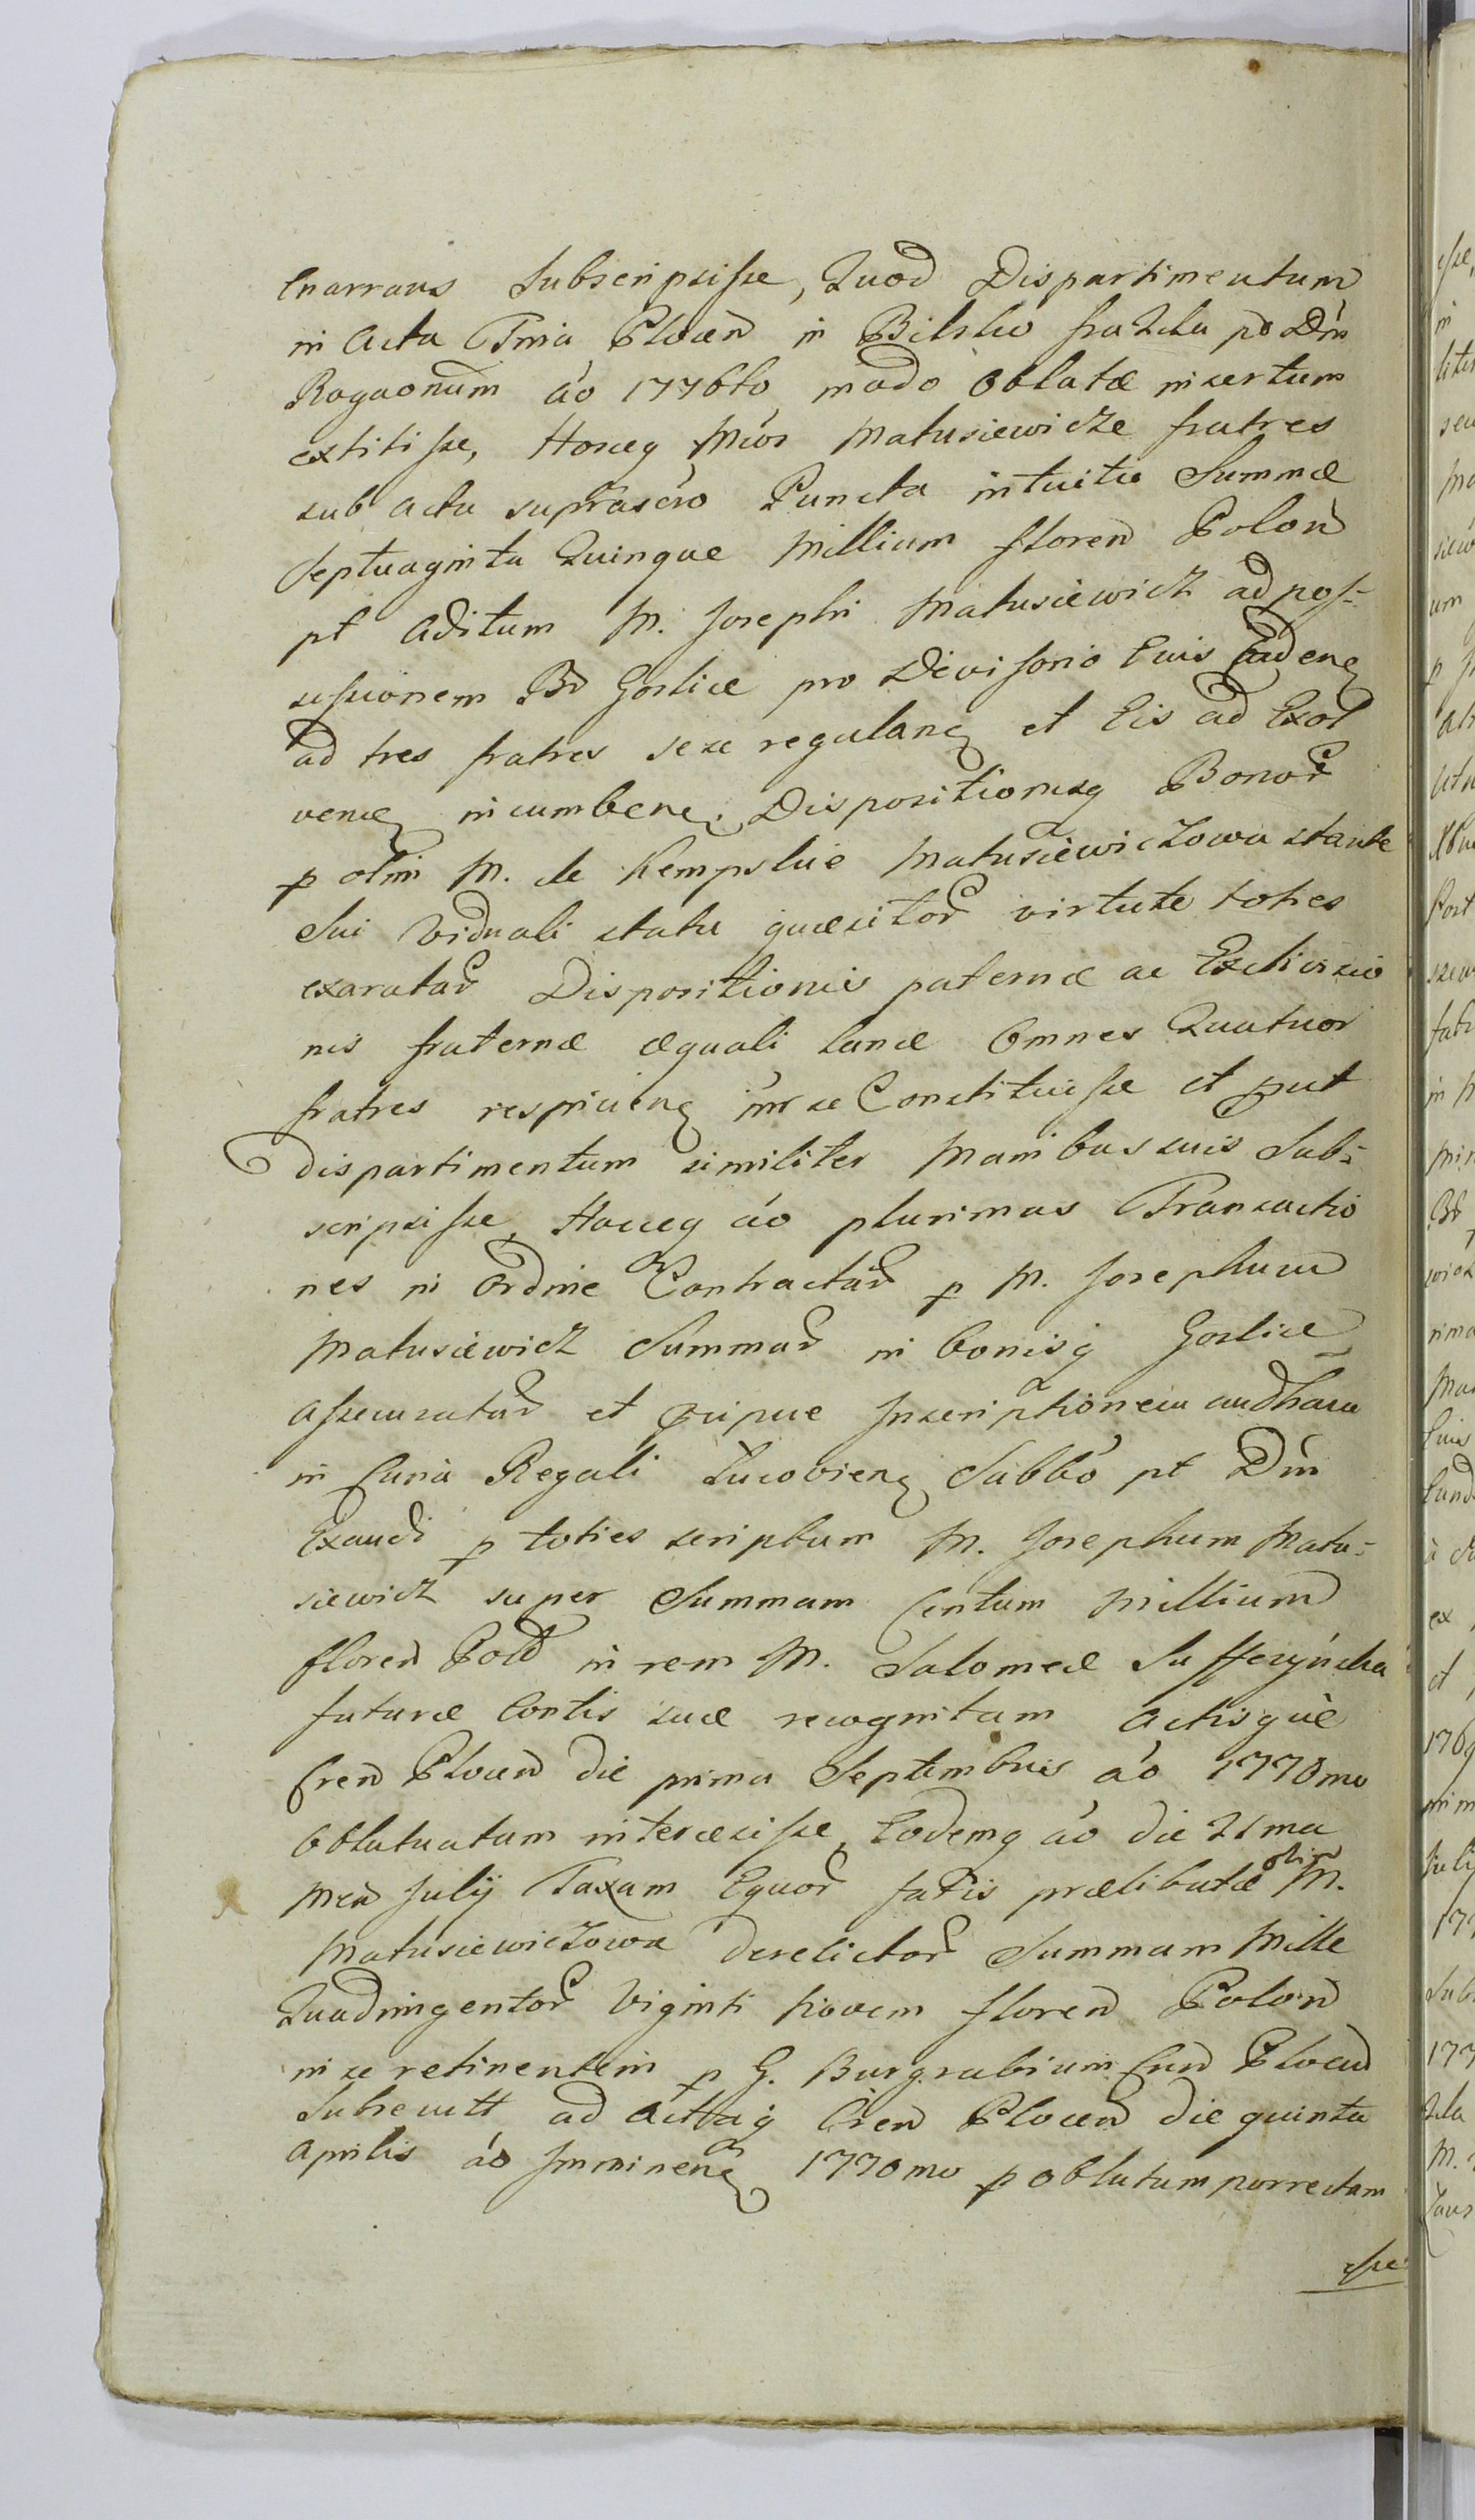 Enarrans Subscripsisse, Quod Dispartimentum
in Acta Tria Plocen in Bilsko fra 2da p͡o Dm̄
Rogaonum a͡o 1776to modo Oblatæ insertum
extitisse, Hocq M͡cos Matusiewicze fratres
sub actu suprascr͡o Puncta intuitu Summæ
Septuaginta Quinque Millium floren Polon
pt Aditum M. Josephi Matusiewicz ad pos=
sessionem Br Goslice pro Divisorio Eius Eaden
ad tres fratres sese regulanq et Eis ad Exol
venq incumbenq. Dispositionisq Bonor
p olim M. de Kempskie Matusiewiczowa stante
Sui Viduali statu quæsitor virtute toties
exaratar Dispositionis paternæ ac Exdivisio
nis fraternæ æquali lance Omnes Quatuor
fratres respicienq inr se Constituisse et put
dispartimentum similiter Manibus suis Sub=
scripsisse, Hocq a͡o plurimas Transactio
nes in Ordine Contractar p M. Josephum
Matusiewicz Summar in bonisq Goslice
assecuratar et p͡cipue Inscriptionem
in Curia Regali Lucovienq Sabbo pt Dm̄
Exaudi p toties scriptum M. Josephum Matu=
siewicz super Summam Centum Millium
floren Pold in rem M. Salomeæ Suffczynska
futuræ Contis suæ recognitam Actisquè
Cren Plocen die prima Septembris a͡o 1770mo
Oblatuatam intercessisse, Eodemq a͡o die 21ma
Men Julij Taxam Equor fatis prælibatæ olim M.
Matusiewiczowa derelictor Summam Mille
Quadringentor Viginti Novem floren Polon
in se retinentem p G. Burgrabium Cren Plocen
Subsecutt ad Actaq Cren Plocen die quinta
Aprilis a͡o Imminenq 1770mo p oblatam porrectam
esse